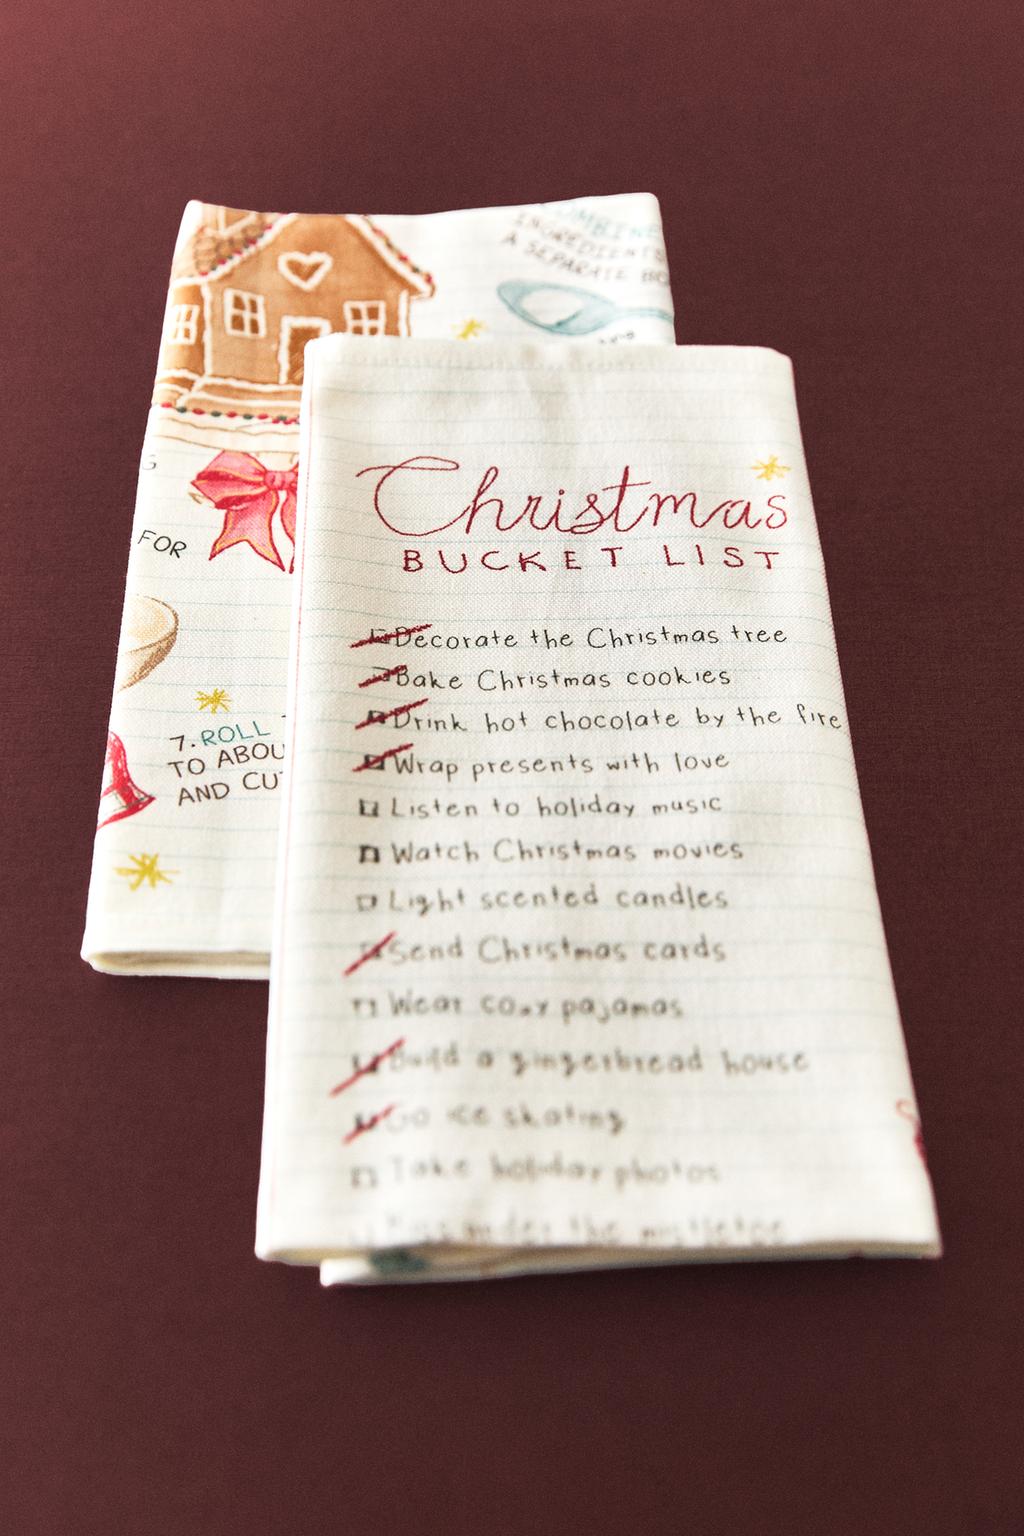 COMBINE
INGREDIENTS
A SEPARATE
FOR
7. ROLL
TO ABOU
AND CUT
Christmas
BUCKET LIST
Decorate the Christmas tree
Bake Christmas cookies
Drink hot chocolate by the fire
Wrap presents with love
Listen to holiday music
Watch Christmas movies
Light scented candles
Send Christmas cards
Wear cozy pajamas
Build a gingerbread house
Go ice skating
Take holiday photos
under the mistletoe